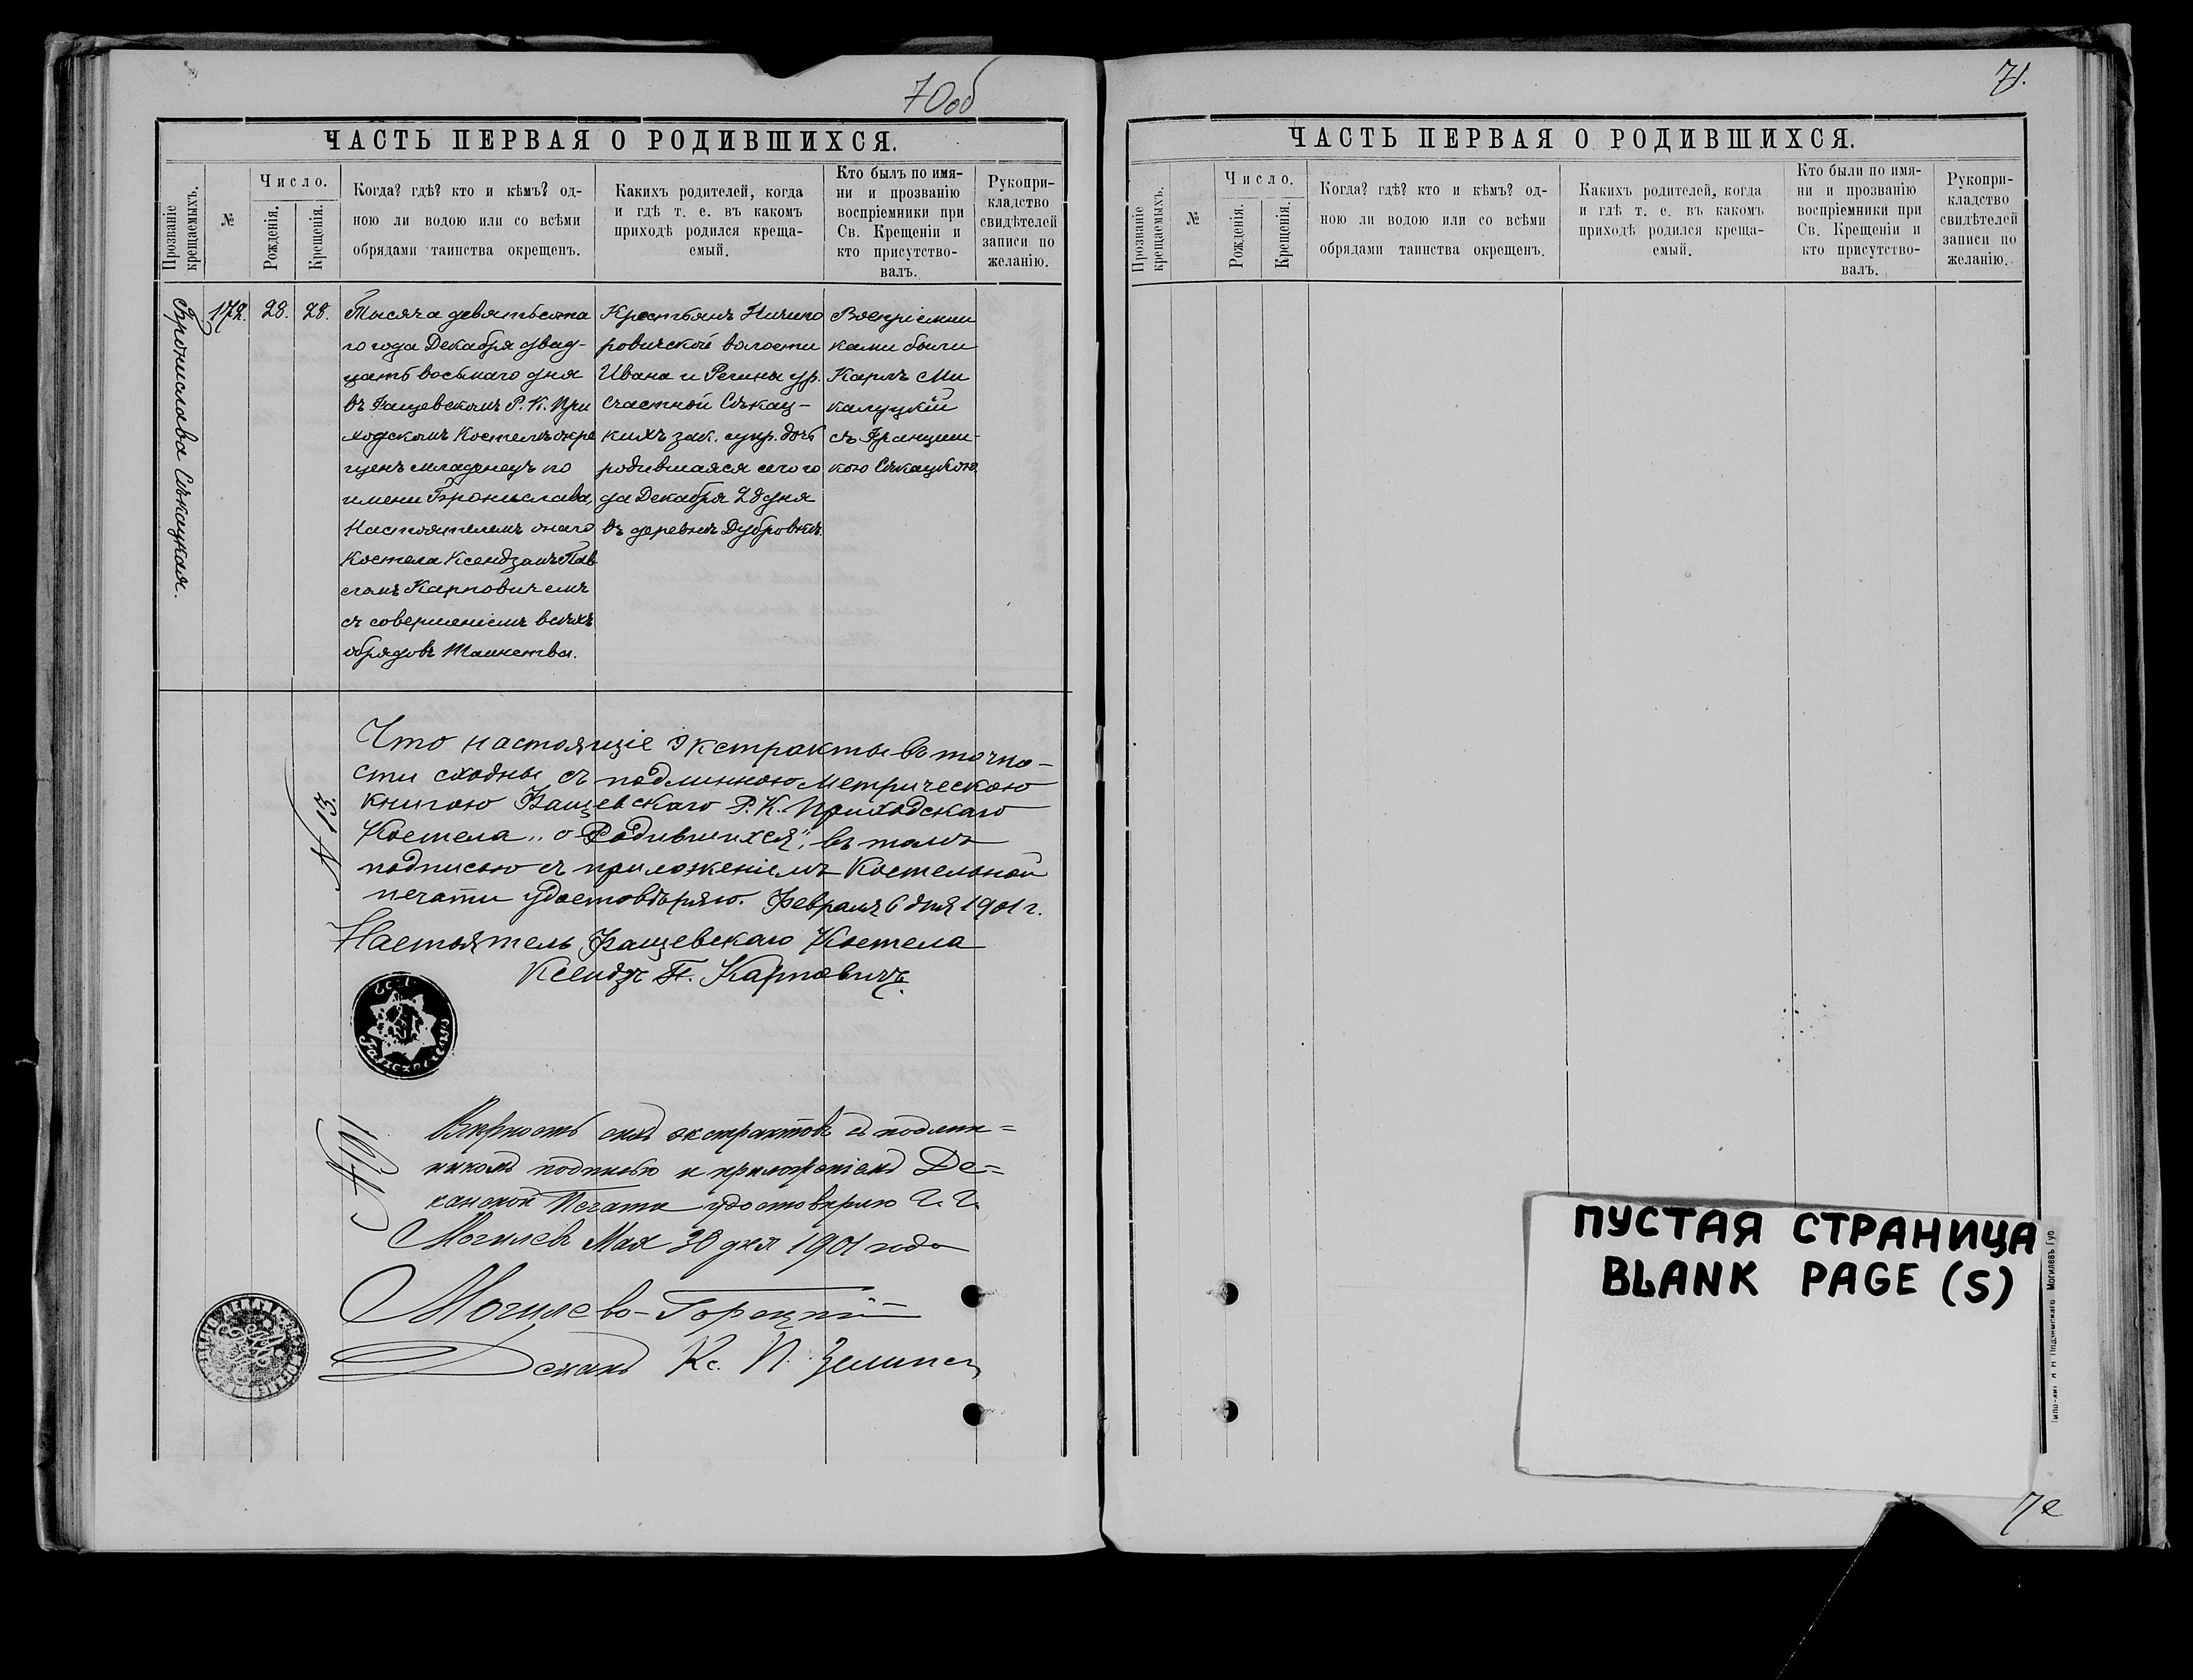 70об
ЧАСТЬ ПЕРВАЯ О РОДИВШИХСЯ.
Прозваніе крещаемыхъ.
№
Число.
Рожденія.
Крещенія.
Когда? гдѣ? кто и кѣмъ? од-
ною ли водою или со всѣми
обрядами таинства окрещенъ.
Какихъ родителей, когда
и гдѣ т. е. въ какомъ
приходѣ родился креща-
емый.
Кто былъ по имя-
ни и прозванію
воспріемники при
Св. Крещеніи и
кто присутство-
валъ.
Рукопри-
кладство
свидѣтелей
записи по
желанію.
Бронислава Сѣкацкая.
172.
28.
28.
Тысяча девятьсота
го года Декабря двад-
цать восьмаго дня
въ Фащевскомъ Р. К. При
ходскомъ Костелѣ окре
щенъ младенецъ по
имени Бронислава,
Настоятелемъ онаго
Костела Ксендзомъ Пав
ломъ Карповичемъ
съ совершеніемъ всѣхъ
обрядовъ Таинства.
Крестьянъ Ничипо
ровичской волости
Ивана и Регины ур.
Счастной Сѣкац-
кихъ зак. супр. дочь
родившаяся сего го
да Декабря 28 дня
въ деревнѣ Дубровкѣ.
Воспріемни
ками были
Карлъ Ми
калуцкій
съ Францин-
кою Сѣкацкою.
№ 13.
Что настоящіе Экстракты въ точно-
сти сходны съ подлинною Метрическою
книгою Фащевскаго Р. К. Приходскаго
Костела „о Родившихся", въ томъ
подписью съ приложеніемъ Костельной
печати удостовѣряю. Февраля 6 дня 1901 г.
Настоятель Фащевскаго Костела
Ксендзъ П. Карповичъ.
№ 191
Вѣрность сихъ экстрактовъ съ подлин=
никомъ подписью и приложеніемъ Де=
канской Печати удостовѣряю Г. Г.
Могилевъ Мая 30 дня 1901 года
Могилево-Горецкій
Деканъ Кс. П.
71.
ЧАСТЬ ПЕРВАЯ О РОДИВШИХСЯ.
Прозваніе крещаемыхъ.
№
Число.
Рожденія.
Крещенія.
Когда? гдѣ? кто и кѣмъ? од-
ною ли водою или со всѣми
обрядами таинства окрещенъ.
Какихъ родителей, когда
и гдѣ т. е. въ какомъ
приходѣ родился креща-
емый.
Кто были по имя-
ни и прозванію
воспріемники при
Св. Крещеніи и
кто присутство-
валъ.
Рукопри-
кладство
свидѣтелей
записи по
желанію.
ПУСТАЯ СТРАНИЦА
BLANK PAGE (S)
Могилевъ Губ
72